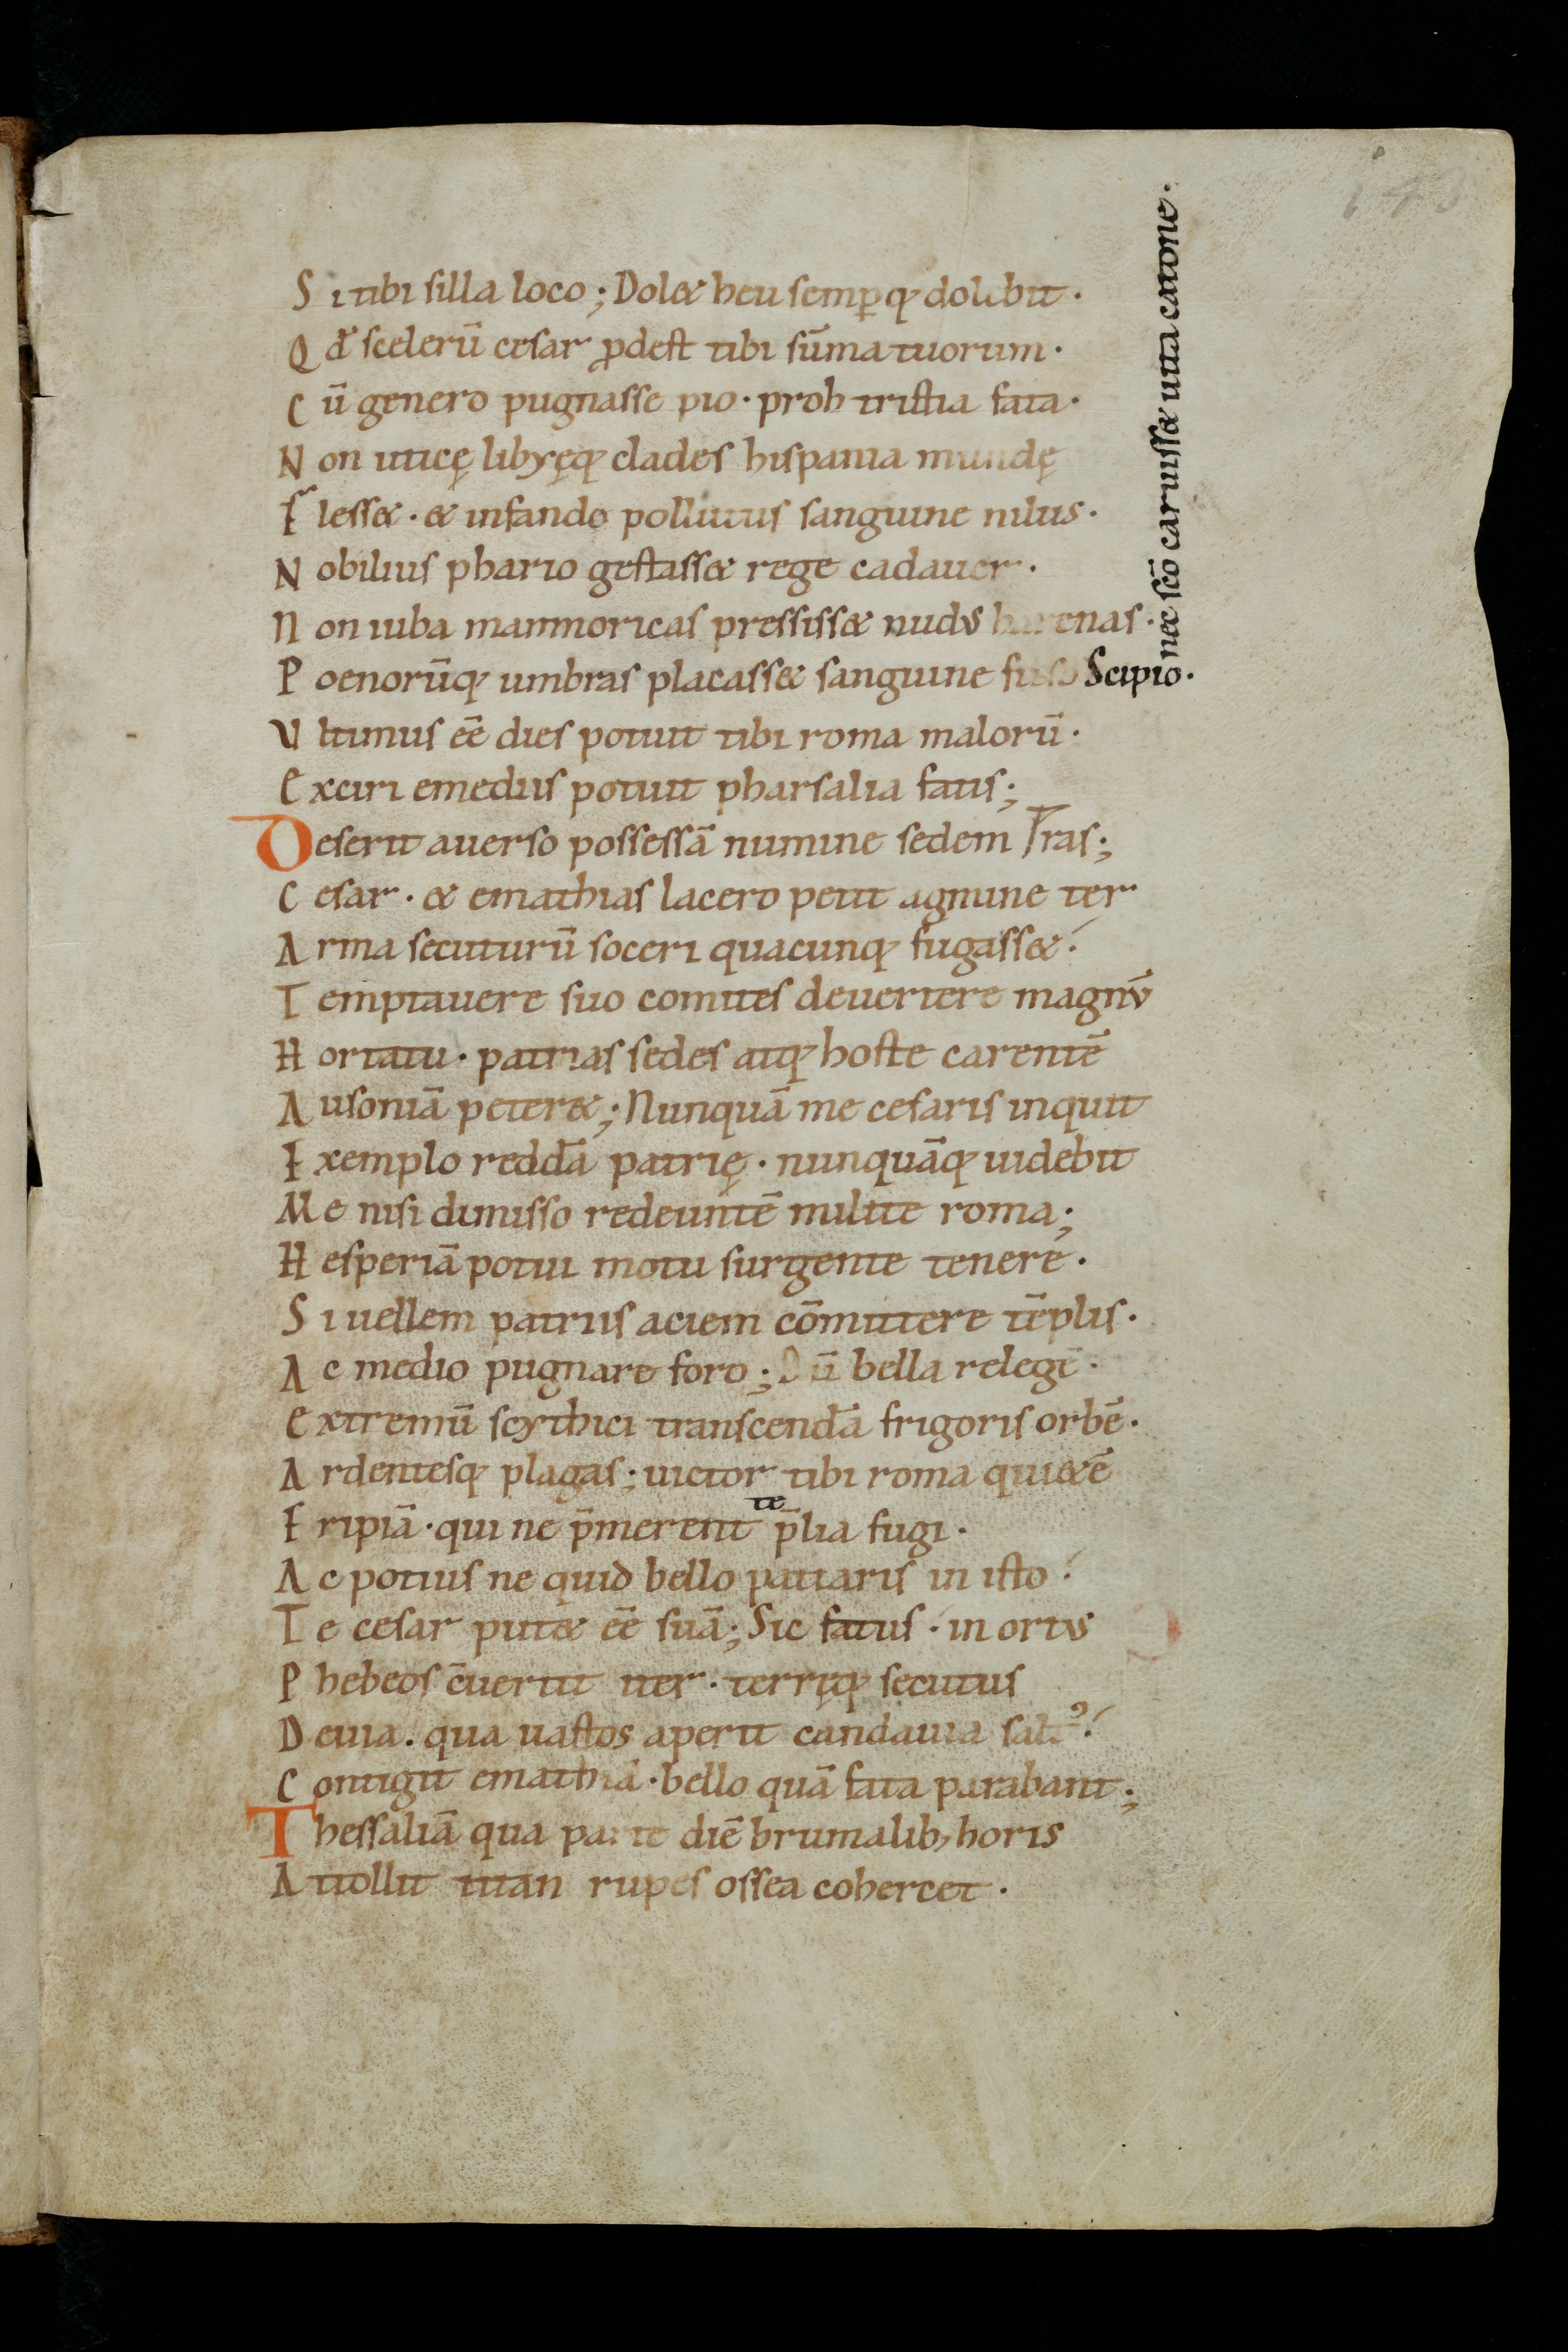 S i tibi silla loco ; Dol& heu semp̲q; dolebit ·
Q đ scelerū cesar ꝓdest tibi sūma tuorum ·
C ū genero pugnasse pio · proh tristia fata ·
N on uticę libyęq; clades hispania mundę
F less& · & infando pollutus sanguine nilus ·
N obilius phario gestass& rege cadauer ·
N on iuba marmoricas pressiss& nudus harenas ·
P oenorūq; umbras placass& sanguine fuso Scipio ·
nec scō caruiss& uita catone ·
V ltimus eē dies potuit tibi roma malorū ·
E xciri emediis potuit pharsalia fatis ;
Deserit auerso possessā numine sedem
C esar · & emathias lacero petit agmine ter ras ;
A rma secuturū soceri quacunq; fugass& ·
T emptauere suo comites deuertere magnū
H ortatu · patrias sedes atq; hoste carentē
A usoniā peter& ; Nunquā me cesaris inquit
E xemplo reddā patrię · nunquāq; uidebit
M e nisi dimisso redeuntē milite roma ;
H esperiā potui motu surgente tenere ·
S i uellem patriis aciem cōmittere tēplis ·
A c medio pugnare foro ; Dū bella relegē ·
E xtremū scythici transcendā frigoris orbē ·
A rdentesq; plagas ; uictor tibi roma qui&ē
E ripiā · qui ne p̄merent te p̄lia fugi ·
A c potius ne quid bello patiaris in isto ·
T e cesar put& eē suā ; Sic fatus · in ortus
P hebeos c̄uertit iter · terręq; secutus
D euia . qua uastos aperit candauia salt⁹ ·
C ontigit emathiā · bello quā fata parabant ;
Thessaliā qua parte diē brumalib; horis
A ttollit titan rupes ossea cohercet ·